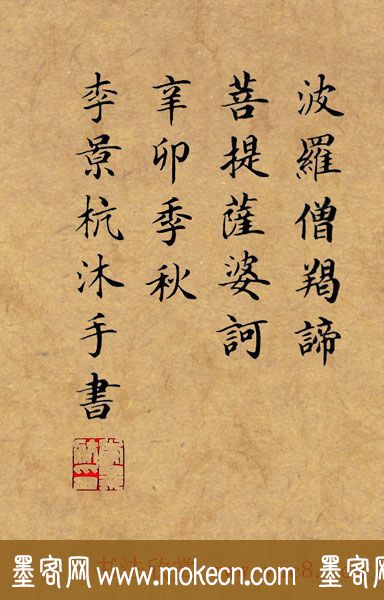 波羅僧羯諦
菩提薩婆訶
辛卯季秋
李景杭沐手書
墨客网 www.mokecn.com 墨客网